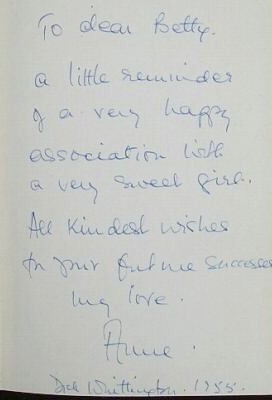 To dear Betty.
a little reminder
of a very happy
association with
a very sweet girl.
All Kindest wishes
for your future successes
my love.
Anne.
Dick Whittington. 1955.